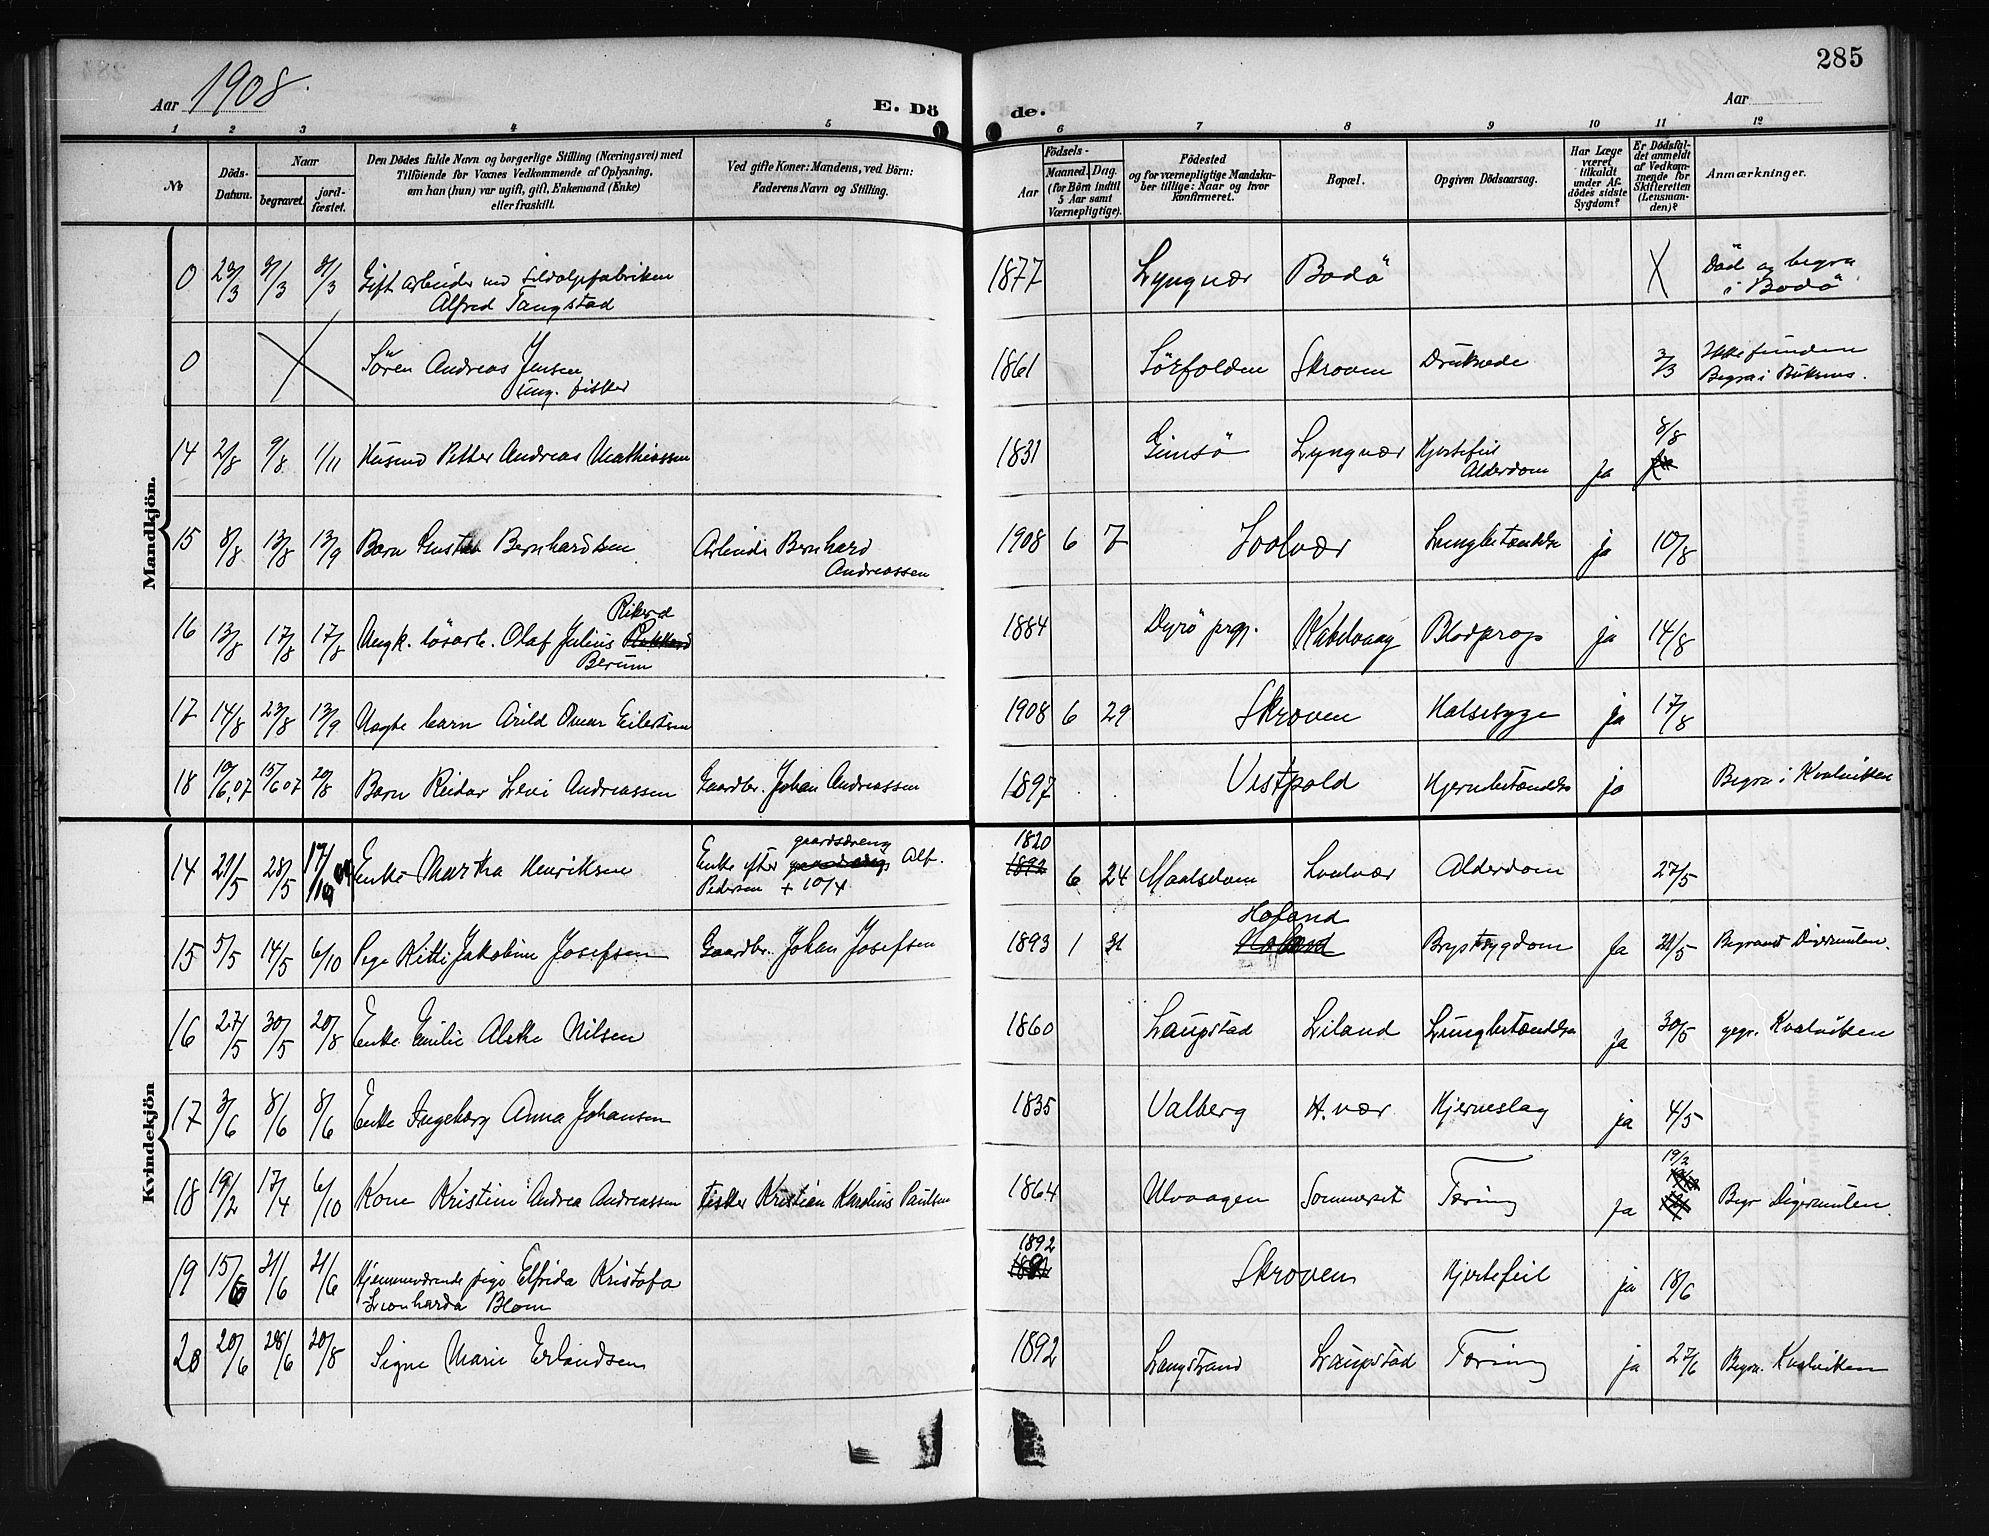 285
Aar 1908.
E. Dö
de.
Aar
1 2 3 4 5 6 7 8 9 10 11 12
No
Döds-Datum.
Naar
begravet.
jord-fæstet.
Den Dödes fulde Navn og borgerlige Stilling (Næringsvei) med
Tilföiende for Voxnes Vedkommende af Oplysning,
om han (hun) var ugift, gift, Enkemand (Enke)
eller fraskilt.
Ved gifte Koner: Mandens, ved Börn:
Faderens Navn og Stilling.
Födsels-
Aar
Maaned. Dag.
(for Börn indtil
5 Aar samt
Værnepligtige).
Födested
og for værnepligtige Mandska-
ber tillige: Naar og hvor
konfirmeret.
Bopæl.
Opgiven Dödsaarsag.
Har Læge
været
tilkaldt
under Af-
dödes sidste
Sygdom?
Er Dödsfal-
det anmeldt
af Vedkom-
mende for
Skifteretten
(Lensman-
den)?
Anmærkninger.
Mandkjön.
0 23/3 Gift arbeider ved
Alfred Tangstad
1877 Lyngvær Bodö X Död og begra
i Bodö
0 Sören Andreas Jensen
Ung. fisker
1861 Sörfolden Skroven 3/3 Ikke funden
Begra i
14 2/8 9/8 1/11 Husmd Petter Andreas Mathiassen
1831 Gimsö Lyngvær Hjertefeil
Alderdom Ja 8/8
15 8/8 13/8 13/9 Barn Bernhardsen Arbeider Bernhard
Andreassen
1908 6 7 Svolvær Lungebetændelse ja 10/8
16 13/8 17/8 17/8 Ungk. lösarb. Olaf Julius Rikard
Berum
1884 Dyrö prgj. Kabelvaag Blodprop ja 14/8
17 14/8 23/8 13/9 Uægte barn Arild Omar Eilertsen
1908 6 29 Skroven Halsesyge ja 17/8
18 10/6.07 15/6 07 20/8 Barn Reidar Levi Andreassen Gaardbr. Johan Andreassen
1897 Vestpold Hjernebetændelse ja Begra i Kvalviken
Kvindekjön
14 21/5 28/5 Enke Martha Henriksen Enke efter gaardsdreng Alf.
Pedersen + 10/4
1820 6 24 Maalselven Svolvær Alderdom 27/5
15 5/5 14/5 6/10 Pige Kitti Jakobine Josefsen Gaardbr. Johan Josefsen
1893 1 31 Holand Brystsygdom Ja 21/5 Begravet Digermulen.
16 27/5 30/5 20/8 Enke Emilie Aletke Nilsen
1860 Laupstad Liland Lungebetændelse Ja 30/5 Kvalviken
17 3/6 8/6 8/6 Enke Ingeborg Anna Johansen
1835 Valberg H.vær Hjerneslag ja 4/5
18 19/2 17/4 6/10 Kone Kristine Andrea Andreassen Fisker Kristian Karolius Paulsen
1864 Ulvaagen Sommerset Tæring Ja 19/2 Begr Digermulen.
19 15/6 21/6 21/6 Hjemmeværende pige Elfrida Kristofa
Leonharda Blom
1892 Skroven Hjertefeil ja 18/6
20 20/6 28/6 20/8 Signe Marie Erlandsen
1892 Langstrand Laupstad Tæring ja 27/6 Begra. Kvalviken